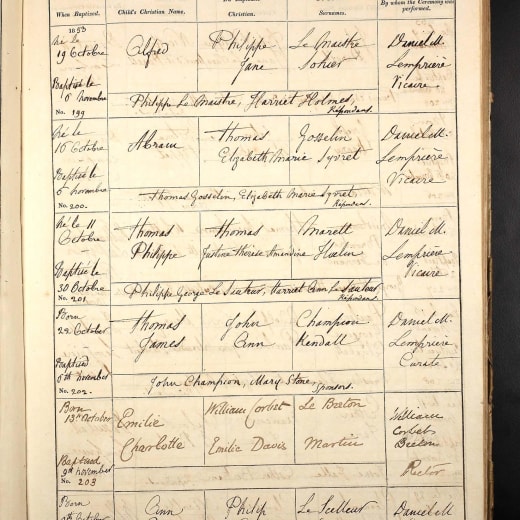 When Baptised. Child's Christian Name. Christian. Surnames. By whom the Ceremony was performed.
1853
Né le
19 Octobre Alfred Philippe Le Maistre Daniel M.
Jane Sohier Lemprière
Baptisé le Vicaire.
6 Novembre Philippe Le Maistre, Harriet Holmes,
No. 199 Répondans.
Né le
16 Octobre Abram Thomas Gosselin Daniel M.
Elizabeth Marie Syvret Lemprière
Baptisé le Vicaire
6 Novembre
No. 200. Thomas Gosselin, Elizabeth Marie Syvret
Répondans.
Né le 11
Octobre Thomas Thomas Marett Daniel M.
Philippe Justine Thérèse Amandine Lemprière
Baptisé le Vicaire.
30 Octobre
No. 201 Philippe George Le Sauteur, Harriet Ann Le Sauteur
Répondans.
Born
22 October Thomas John Champion Daniel M.
James Ann Kendall Lemprière
Baptised Curate.
6th November
No. 202. John Champion, Mary Stone,
Sponsors.
Born
13th October Emilie William Corbet Le Breton William
Corbet
Charlotte Emilie Davis Martin Breton
Baptised
9th November Rector
No. 203
Born
October Ann Philip Le Seelleur Daniel M